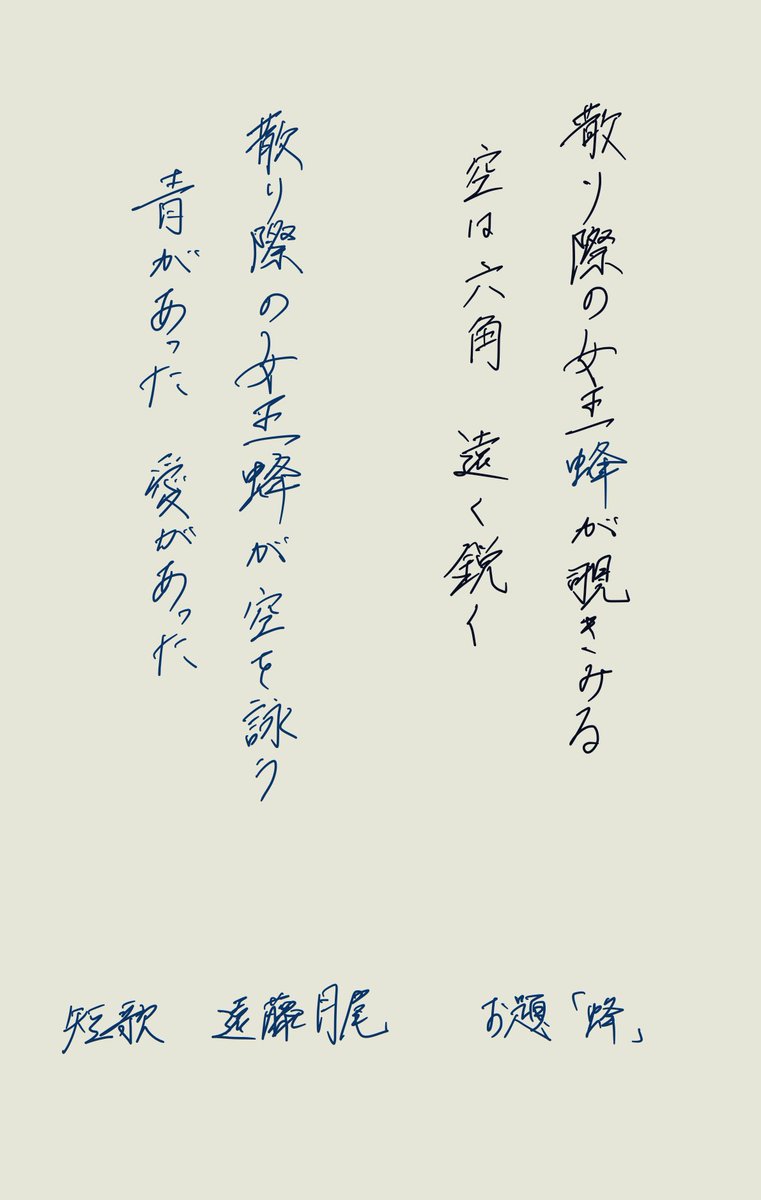 散り際の女王蜂が覗きみる
空は六角　遠く鋭く
散り際の女王蜂が空を詠う
青があった　愛があった
お題「蜂」
短歌　遠藤月尾